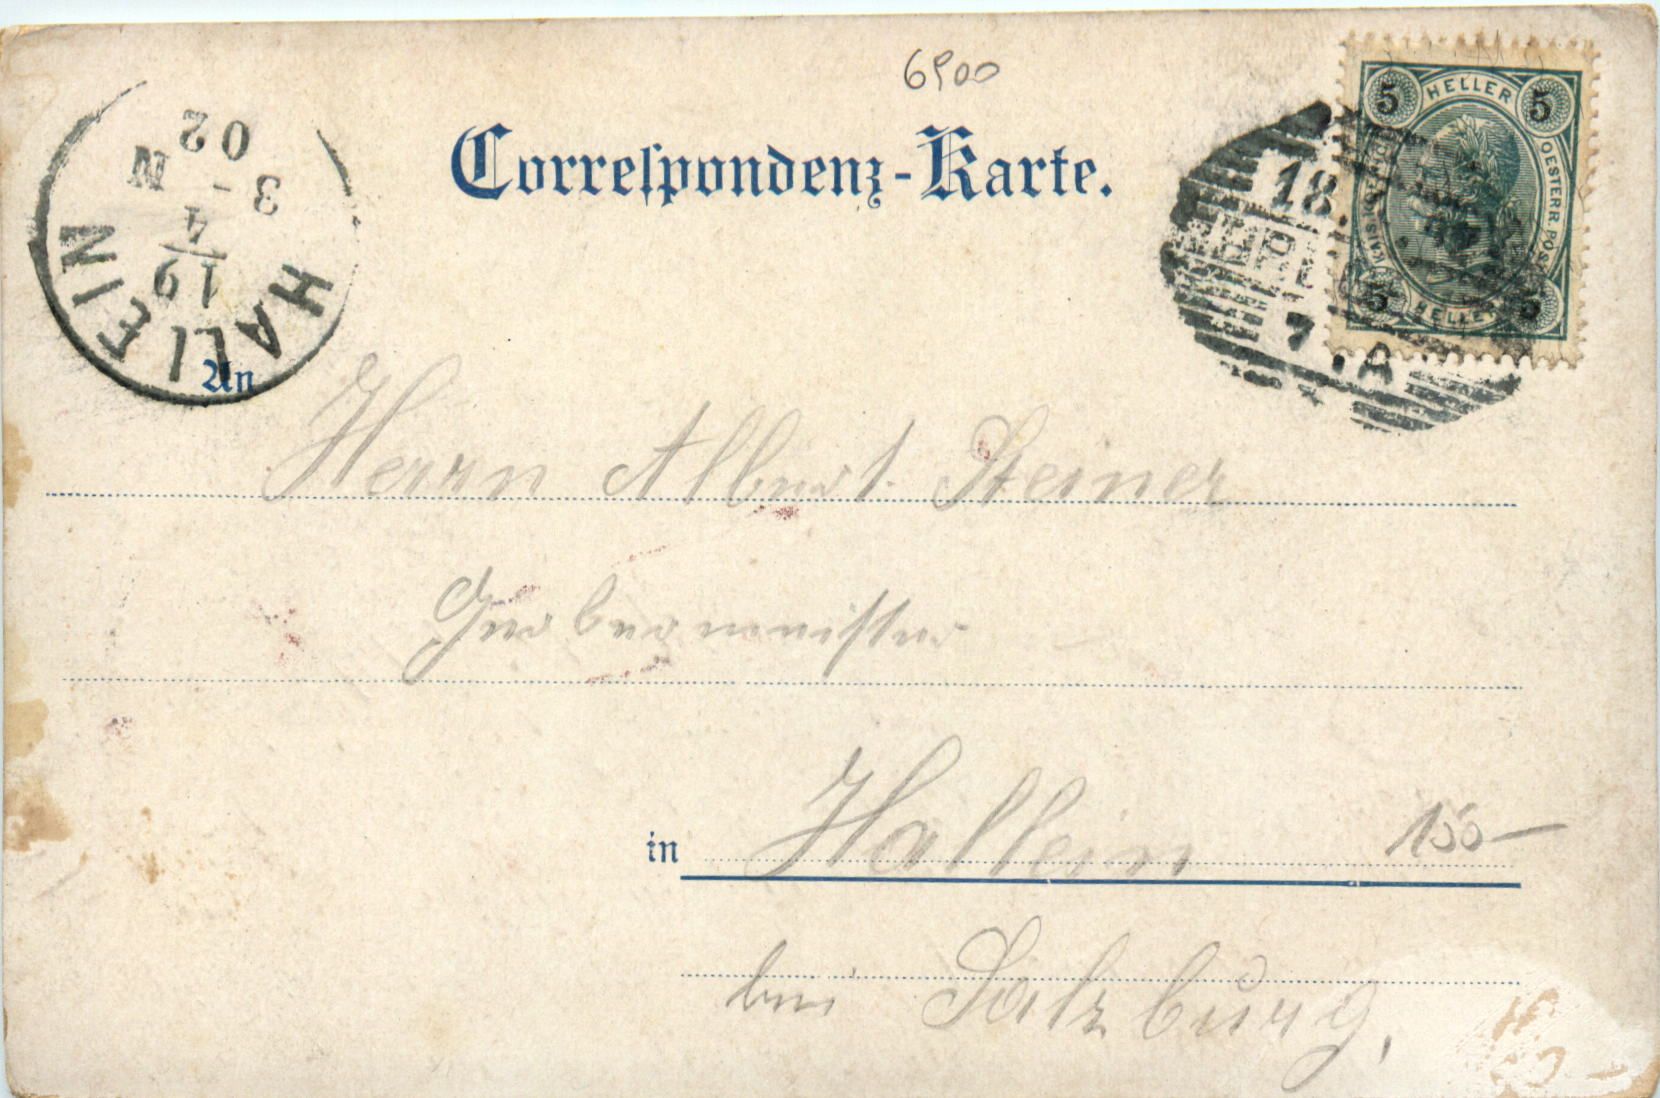 6900
Correſpondenz-Karte.
5 HELLER 5
OESTERR. POST
KAIS
5 HELLER 5
18.
7 A
HALLEIN
19
4
3 - N
02
An
Herrn Albert Steiner
Gerbermeister
in Hallein
150 —
bei Salzburg,